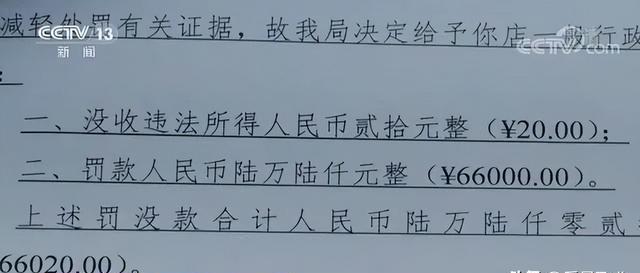 CCTV 13
新闻
CCTV.com
减轻处罚有关证据，故我局决定给予你店一般行政
：
一、没收违法所得人民币贰拾元整（¥20.00）；
二、罚款人民币陆万陆仟元整（¥66000.00）。
上述罚没款合计人民币陆万陆仟零贰
66020.00）。